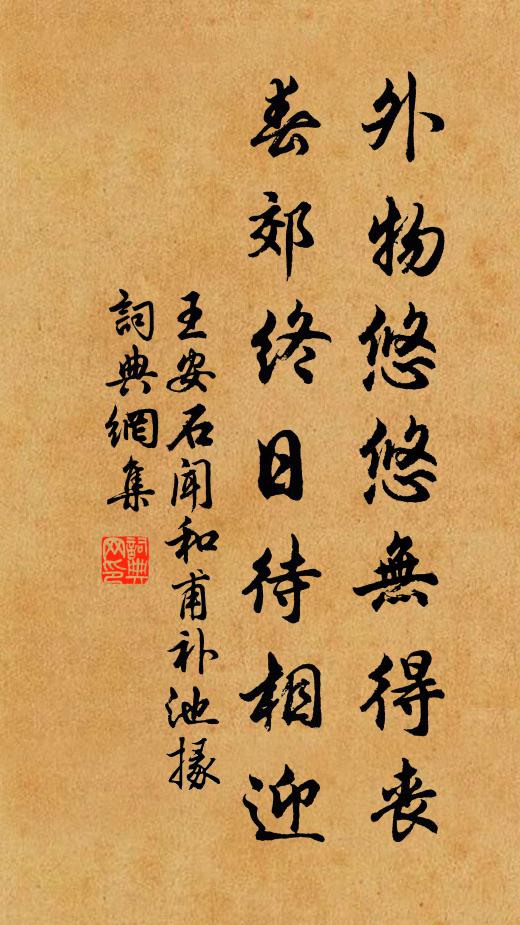 外物悠悠無得丧
春郊终日待相迎
王安石闻和甫补池掾
詞典網集
詞典网印